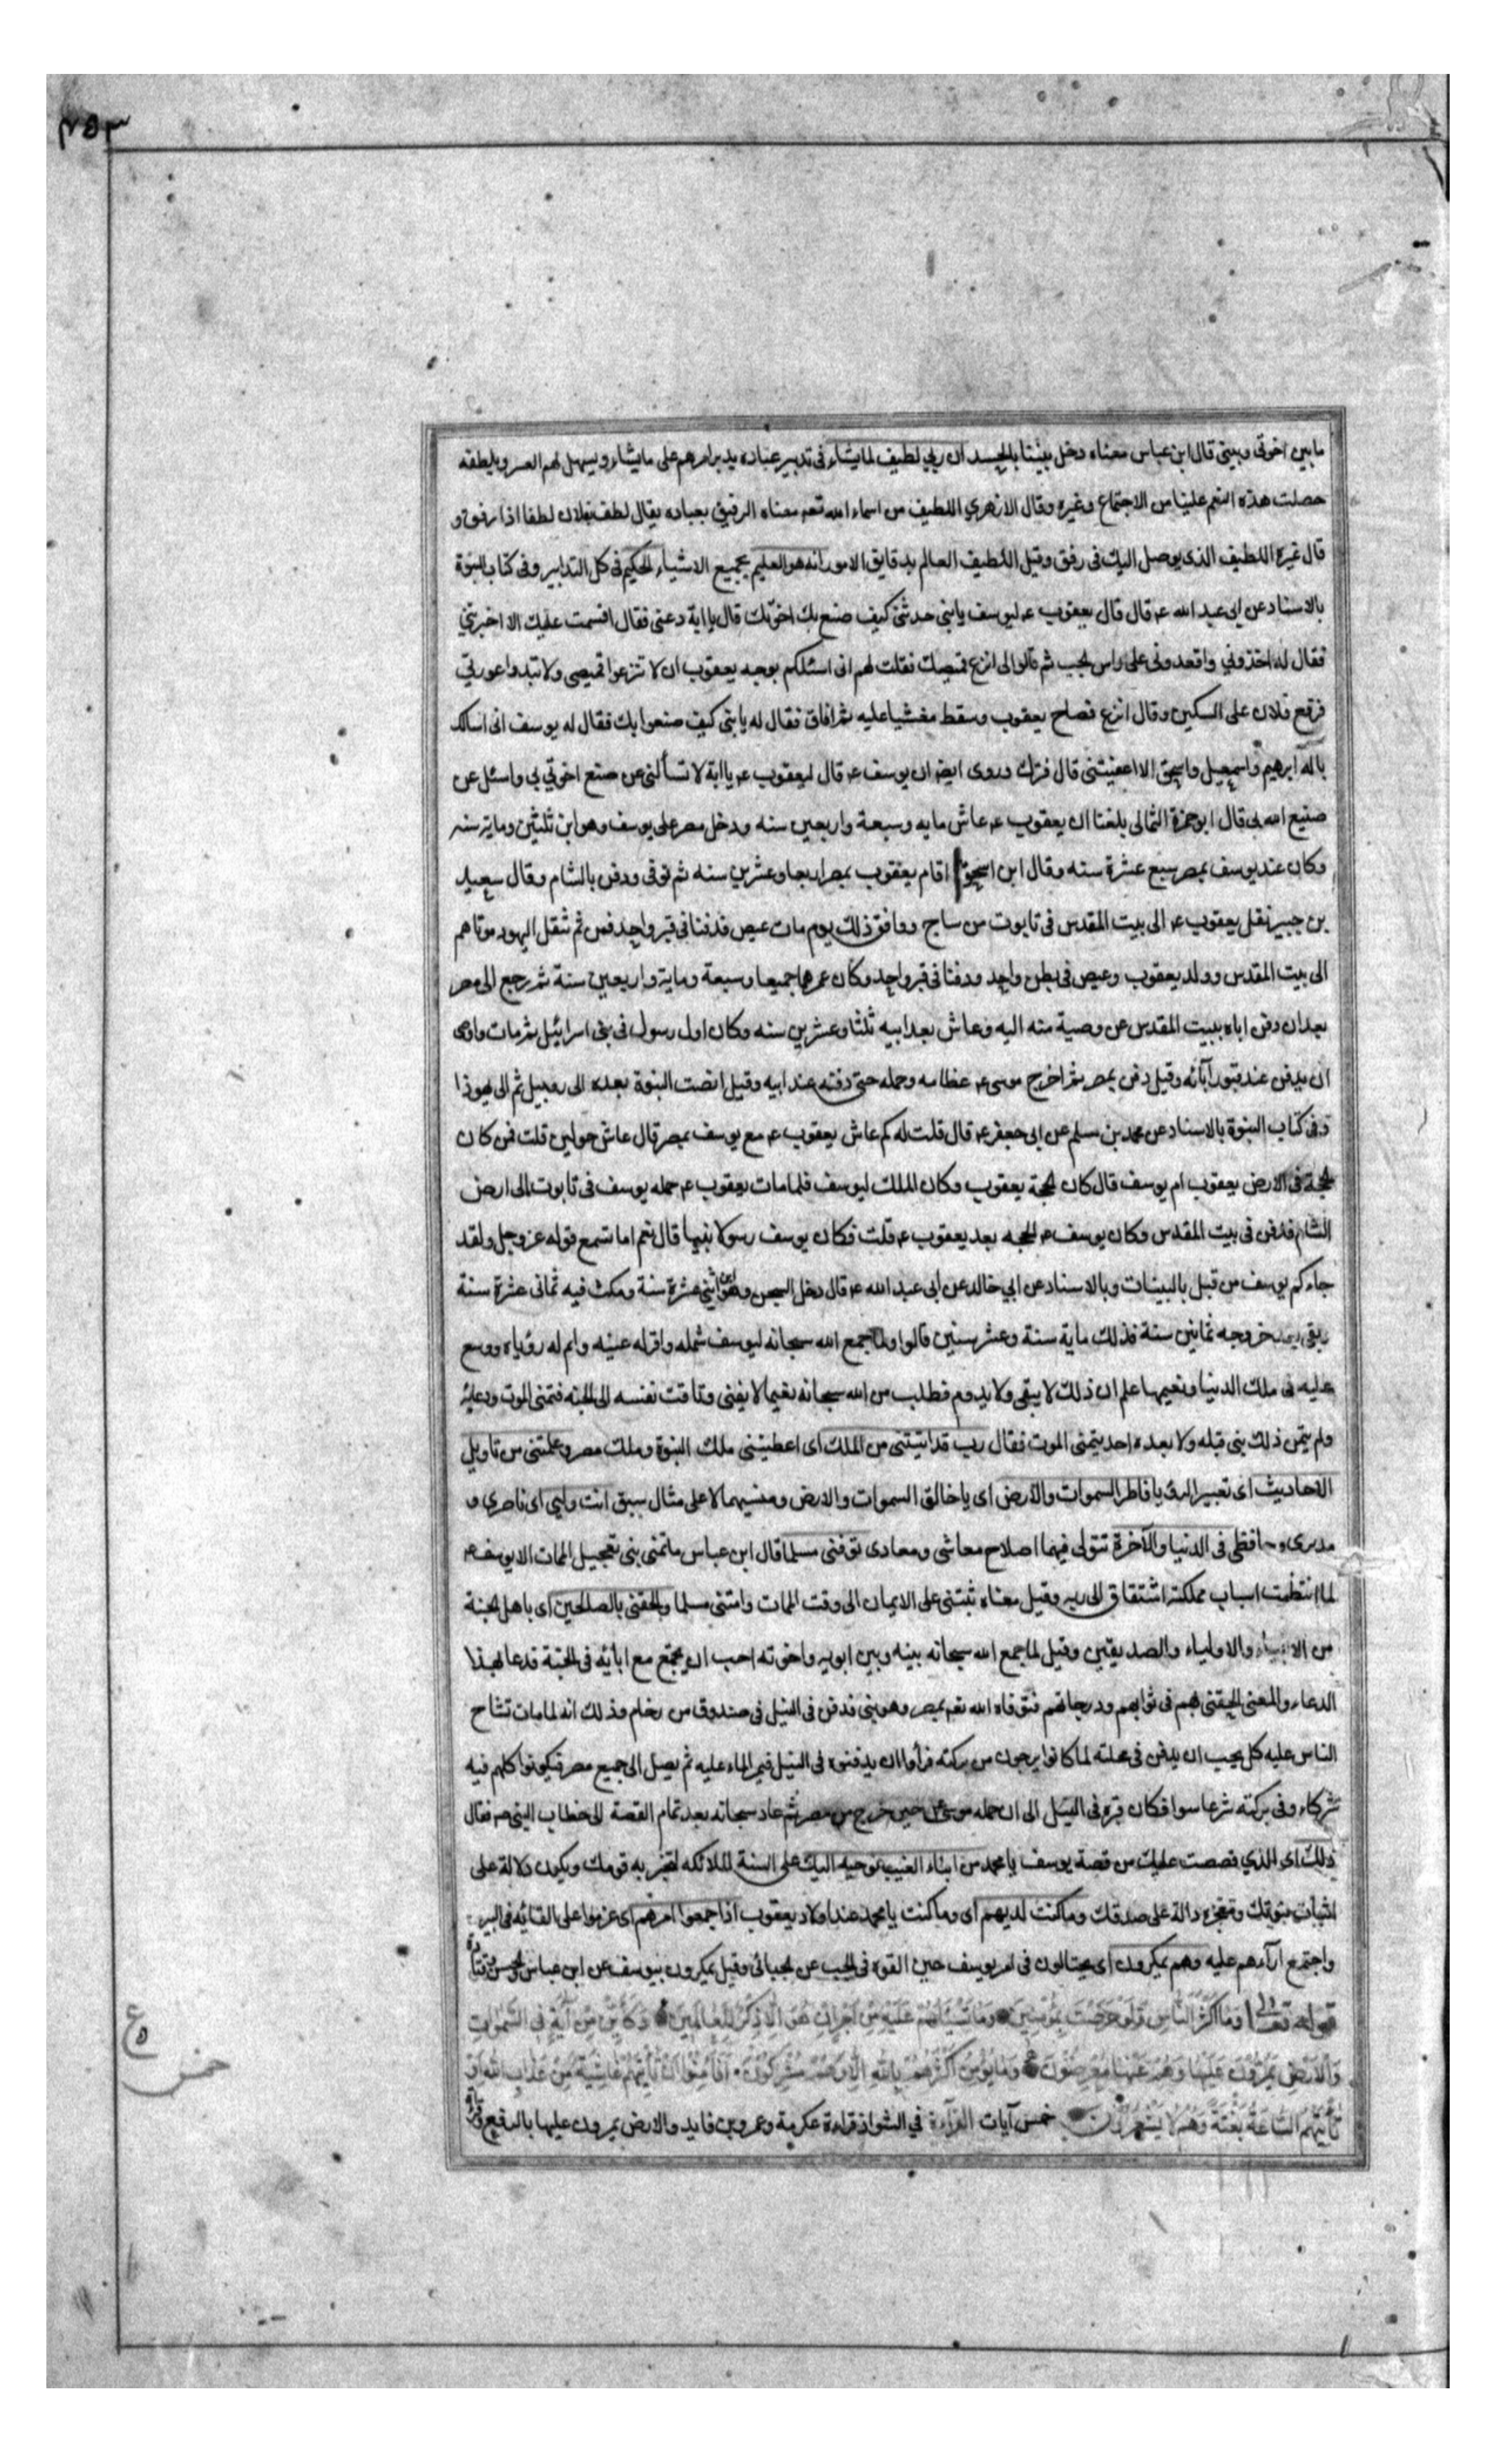 ٣٥٣
ما بين اخوتى وبينى قال ابن عباس معناه دخل بيننا بالحسد ان ربي لطيف لما يشاء فى تدبير عباده يدبر امرهم على ما يشاء ويسهل لهم العسر وبلطفه
حصلت هذه النعم علينا من الاجتماع وغيره وقال الازهري اللطيف من اسماء الله تعه معناه الرفيق بعباده يقال لطف فلان لطفا اذا رفق و
قال غيره اللطيف الذى يوصل اليك فى رفق وقيل اللطيف العالم بدقايق الامور انه هو العليم بجميع الاشياء الحكيم فى كل التدابير وفى كتاب النبوة
بالاسناد عن ابى عبد الله عم قال قال يعقوب عم ليوسف يا بنى حدثنى كيف صنع بك اخوتك قال يا ابة دعنى فقال اقسمت عليك الا اخبرتني
فقال له اخذوني واقعدونى على راس الجب ثم قالوا لى انزع قميصك فقلت لهم انى اسئلكم بوجه يعقوب ان لا تنزعوا قميصى ولا تبدوا عورتي
فرفع فلان على السكين وقال انزع فصاح يعقوب وسقط مغشيا عليه ثم افاق فقال له يا بنى كيف صنعوا بك فقال له يوسف انى اسالك
باله ابرهيم واسمعيل واسحق الا اعفيتنى قال فترك وروى ايضا ان يوسف عم قال ليعقوب عم يا ابة لا تسألنى عن صنع اخوتي بي واسئل عن
صنيع الله بى قال ابو حمزة الثمالى بلغنا ان يعقوب عم عاش مايه وسبعة واربعين سنه ودخل مصر على يوسف وهو ابن ثلثين وماية سنه
وكان عند يوسف بمصر سبع عشرة سنه وقال ابن اسحق اقام يعقوب بمصر اربعا وعشرين سنه ثم توفى ودفن بالشام وقال سعيد
بن جبير نقل يعقوب عم الى بيت المقدس فى تابوت من ساج ووافق ذلك يوم مات عيص فدفنا فى قبر واحد فمن ثم تنقل اليهود موتاهم
الى بيت المقدس وولد يعقوب وعيص فى بطن واحد ودفنا فى قبر واحد وكان عمرهما جميعا وسبعة وماية واربعين سنة ثم رجع الى مصر
بعد ان دفن اباه ببيت المقدس عن وصية منه اليه وعاش بعد ابيه ثلثا وعشرين سنه وكان اول رسول فى بنى اسرائيل ثم مات واوصى
ان يدفن عند قبور آبائه وقيل دفن بمصر ثم اخرج موسى عم عظامه وحمله حتى دفنه عند ابيه وقيل افضت النبوة بعده الى روبيل ثم الى يهوذا
وفى كتاب النبوة بالاسناد عن محمد بن مسلم عن ابى جعفر عم قال قلت له كم عاش يعقوب عم مع يوسف بمصر قال عاش حولين قلت فمن كان
الحجة فى الارض يعقوب ام يوسف قال كان الحجة يعقوب وكان الملك ليوسف فلما مات يعقوب عم حمله يوسف فى تابوت الى ارض
الشام فدفن فى بيت المقدس وكان يوسف عم الحجه بعد يعقوب عم قلت فكان يوسف رسولا نبيا قال نعم اما تسمع قوله عز وجل ولقد
جاءكم يوسف من قبل بالبينات وبالاسناد عن ابي خالد عن ابى عبد الله عم قال دخل السجن وهو ابن اثنى عشرة سنة ومكث فيه ثمانى عشرة سنة
وبقى بعد خروجه ثمانين سنة فذلك ماية سنة وعشر سنين قالوا ولما جمع الله سبحانه ليوسف شمله واقر له عينه واتم له رؤياه ووسع
عليه فى ملك الدنيا ونعيمها علم ان ذلك لا يبقى ولا يدوم فطلب من الله سبحانه نعيما لا يفنى وتاقت نفسه الى الجنه فتمنى الموت ودعا به
ولم يتمن ذلك نبى قبله ولا بعده احد يتمنى الموت فقال رب قد اتيتنى من الملك اى اعطيتنى ملك النبوة وملك مصر وعلمتنى من تاويل
الاحاديث اى تعبير الرؤيا فاطر السموات والارض اى يا خالق السموات والارض ومنشيهما لا على مثال سبق انت وليي اى ناصري و
مدبرى وحافظى فى الدنيا والآخرة تتولى فيهما اصلاح معاشى ومعادى توفنى مسلما قال ابن عباس ما تمنى نبى تعجيل الممات الا يوسف عم
لما انتظمت اسباب مملكته اشتقاق الى ربه وقيل معناه ثبتنى على الايمان الى وقت الممات وامتنى مسلما والحقنى بالصلحين اى باهل الجنة
من الانبياء والاولياء والصديقين وقيل لما جمع الله سبحانه بينه وبين ابويه واخوته احب ان يجتمع مع ابائه فى الجنة فدعا بهذا
الدعاء والمعنى الحقنى بهم فى ثوابهم ودرجاتهم فتوفاه الله تعه بمصر وهو نبى فدفن فى النيل فى صندوق من رخام وذلك انه لما مات تشاح
الناس عليه كل يحب ان يدفن فى محلته لما كانوا يرجون من بركته فرأوا ان يدفنوه فى النيل فيمر الماء عليه ثم يصل الى جميع مصر فيكونوا كلهم فيه
شركاء وفى بركته شرعا سوا فكان قبره فى النيل الى ان حمله موسى عم حين خرج من مصر ثم عاد سبحانه بعد تمام القصة الى خطاب النبى صم فقال
ذلك اى الذي قصصت عليك من قصة يوسف يا محمد من انباء الغيب نوحيه اليك على السنة الملائكه لتخبر به قومك ويكون دلالة على
اثبات نبوتك ومعجزه دالة على صدقك وما كنت لديهم اى وما كنت يا محمد عند اولاد يعقوب اذ اجمعوا امرهم اى عزموا على القائه فى البير
واجتمع آراءهم عليه وهم يمكرون اى يحتالون فى امر يوسف حين القوه فى الجب عن الجبائى وقيل يمكرون بيوسف عن ابن عباس والحسن وقتادة
قوله تعالى وَمَا أَكْثَرُ النَّاسِ وَلَوْ حَرَصْتَ بِمُؤْمِنِينَ وَمَا تَسْئَلُهُمْ عَلَيْهِ مِنْ أَجْرٍ إِنْ هُوَ إِلَّا ذِكْرٌ لِلْعَالَمِينَ وَكَأَيِّنْ مِنْ آيَةٍ فِى السَّمَوَاتِ
وَالْأَرْضِ يَمُرُّونَ عَلَيْهَا وَهُمْ عَنْهَا مُعْرِضُونَ وَمَا يُؤْمِنُ أَكْثَرُهُمْ بِاللَّهِ إِلَّا وَهُمْ مُشْرِكُونَ أَفَأَمِنُوا أَنْ تَأْتِيَهُمْ غَاشِيَةٌ مِنْ عَذَابِ اللَّهِ أَوْ
تَأْتِيَهُمُ السَّاعَةُ بَغْتَةً وَهُمْ لَا يَشْعُرُونَ خمس آيات القراءة في الشواذ قراءة عكرمة وعمرو بن فايد والارض يمرون عليها بالرفع
خمس